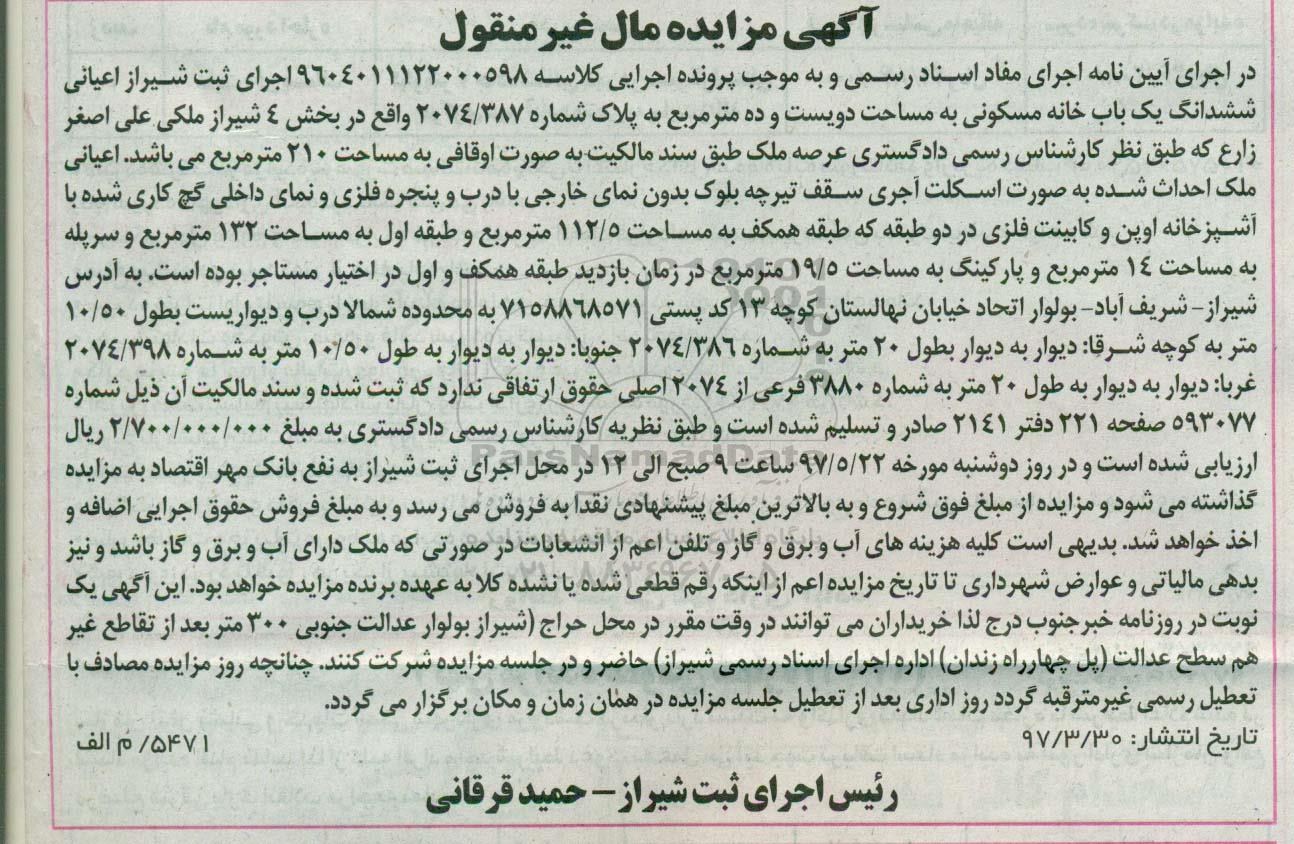 آگهی مزایده مال غیر منقول
در اجرای آیین نامه اجرای مفاد اسناد رسمی و به موجب پرونده اجرایی کلاسه ۹۶۰۴۰۱۱۱۲۲۰۰۰۵۹۸ اجرای ثبت شیراز اعیانی
ششدانگ یک باب خانه مسکونی به مساحت دویست و ده مترمربع به پلاک شماره ۲۰۷۴/۳۸۷ واقع در بخش ۴ شیراز ملکی علی اصغر
زارع که طبق نظر کارشناس رسمی دادگستری عرصه ملک طبق سند مالکیت به صورت اوقافی به مساحت ۲۱۰ مترمربع می باشد. اعیانی
ملک احداث شده به صورت اسکلت آجری سقف تیرچه بلوک بدون نمای خارجی با درب و پنجره فلزی و نمای داخلی گچ کاری شده با
آشپزخانه اوپن و کابینت فلزی در دو طبقه که طبقه همکف به مساحت ۱۱۲/۵ مترمربع و طبقه اول به مساحت ۱۳۲ مترمربع و سرپله
به مساحت ۱۴ مترمربع و پارکینگ به مساحت ۱۹/۵ مترمربع در زمان بازدید طبقه همکف و اول در اختیار مستاجر بوده است. به آدرس
شیراز- شریف آباد- بولوار اتحاد خیابان نهالستان کوچه ۱۳ کد پستی ۷۱۵۸۸۶۸۵۷۱ به محدوده شمالا درب و دیواریست بطول ۱۰/۵۰
متر به کوچه شرقا: دیوار به دیوار بطول ۲۰ متر به شماره ۲۰۷۴/۳۸۶ جنوبا: دیوار به دیوار به طول ۱۰/۵۰ متر به شماره ۲۰۷۴/۳۹۸
غربا: دیوار به دیوار به طول ۲۰ متر به شماره ۳۸۸۰ فرعی از ۲۰۷۴ اصلی حقوق ارتفاقی ندارد که ثبت شده و سند مالکیت آن ذیل شماره
۵۹۳۰۷۷ صفحه ۲۲۱ دفتر ۲۱۴۱ صادر و تسلیم شده است و طبق نظریه کارشناس رسمی دادگستری به مبلغ ۲/۷۰۰/۰۰۰/۰۰۰ ریال
ارزیابی شده است و در روز دوشنبه مورخه ۹۷/۵/۲۲ ساعت ۹ صبح الی ۱۲ در محل اجرای ثبت شیراز به نفع بانک مهر اقتصاد به مزایده
گذاشته می شود و مزایده از مبلغ فوق شروع و به بالاترین مبلغ پیشنهادی نقدا به فروش می رسد و به مبلغ فروش حقوق اجرایی اضافه و
اخذ خواهد شد. بدیهی است کلیه هزینه های آب و برق و گاز و تلفن اعم از انشعابات در صورتی که ملک دارای آب و برق و گاز باشد و نیز
بدهی مالیاتی و عوارض شهرداری تا تاریخ مزایده اعم از اینکه رقم قطعی شده یا نشده کلا به عهده برنده مزایده خواهد بود. این آگهی یک
نوبت در روزنامه خبرجنوب درج لذا خریداران می توانند در وقت مقرر در محل حراج (شیراز بولوار عدالت جنوبی ۳۰۰ متر بعد از تقاطع غیر
هم سطح عدالت (پل چهارراه زندان) اداره اجرای اسناد رسمی شیراز) حاضر و در جلسه مزایده شرکت کنند. چنانچه روز مزایده مصادف با
تعطیل رسمی غیرمترقبه گردد روز اداری بعد از تعطیل جلسه مزایده در همان زمان و مکان برگزار می گردد.
تاریخ انتشار: ۹۷/۳/۳۰
۵۴۷۱/ م الف
رئیس اجرای ثبت شیراز - حمید قرقانی
ParsNamadData